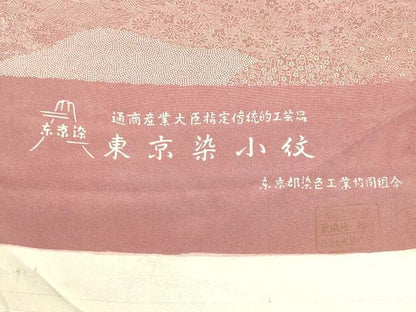 通商産業大臣指定傳統的工芸品
東京染
東京染小紋
東京都染色工業協同組合